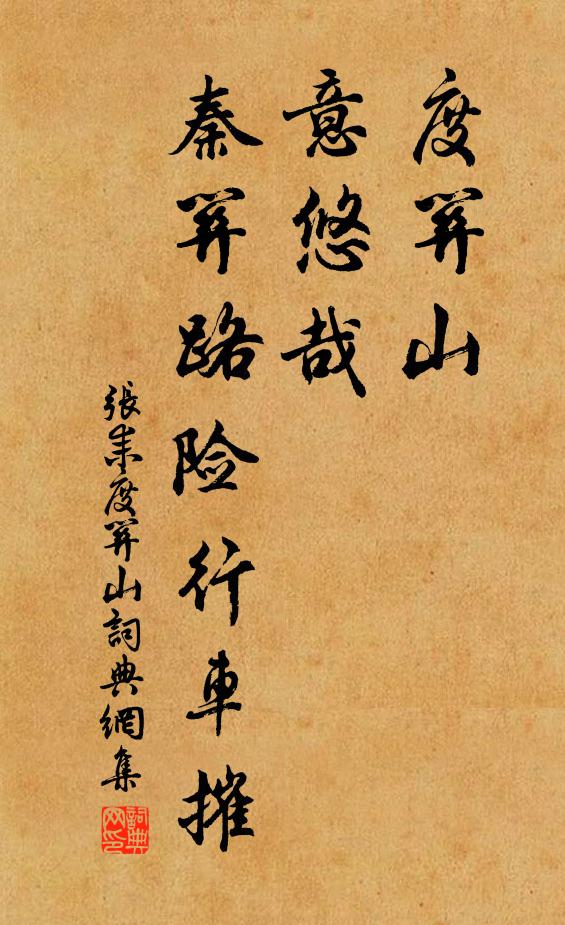 度關山
意悠哉
秦關路险行車摧
張耒度關山詞典網集
詞典网印